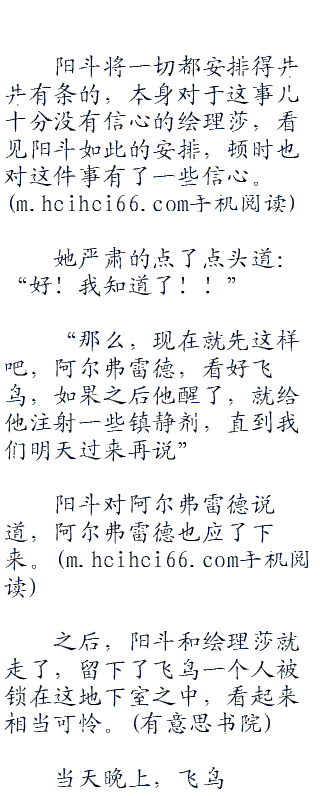 阳斗将一切都安排得井
井有条的，本身对于这事儿
十分没有信心的绘理莎，看
见阳斗如此的安排，顿时也
对这件事有了一些信心。
(m.hcihci66.com手机阅读)
她严肃的点了点头道：
“好！我知道了！！”
“那么，现在就先这样
吧，阿尔弗雷德，看好飞
鸟，如果之后他醒了，就给
他注射一些镇静剂，直到我
们明天过来再说”
阳斗对阿尔弗雷德说
道，阿尔弗雷德也应了下
来。(m.hcihci66.com手机阅
读)
之后，阳斗和绘理莎就
走了，留下了飞鸟一个人被
锁在这地下室之中，看起来
相当可怜。(有意思书院)
当天晚上，飞鸟